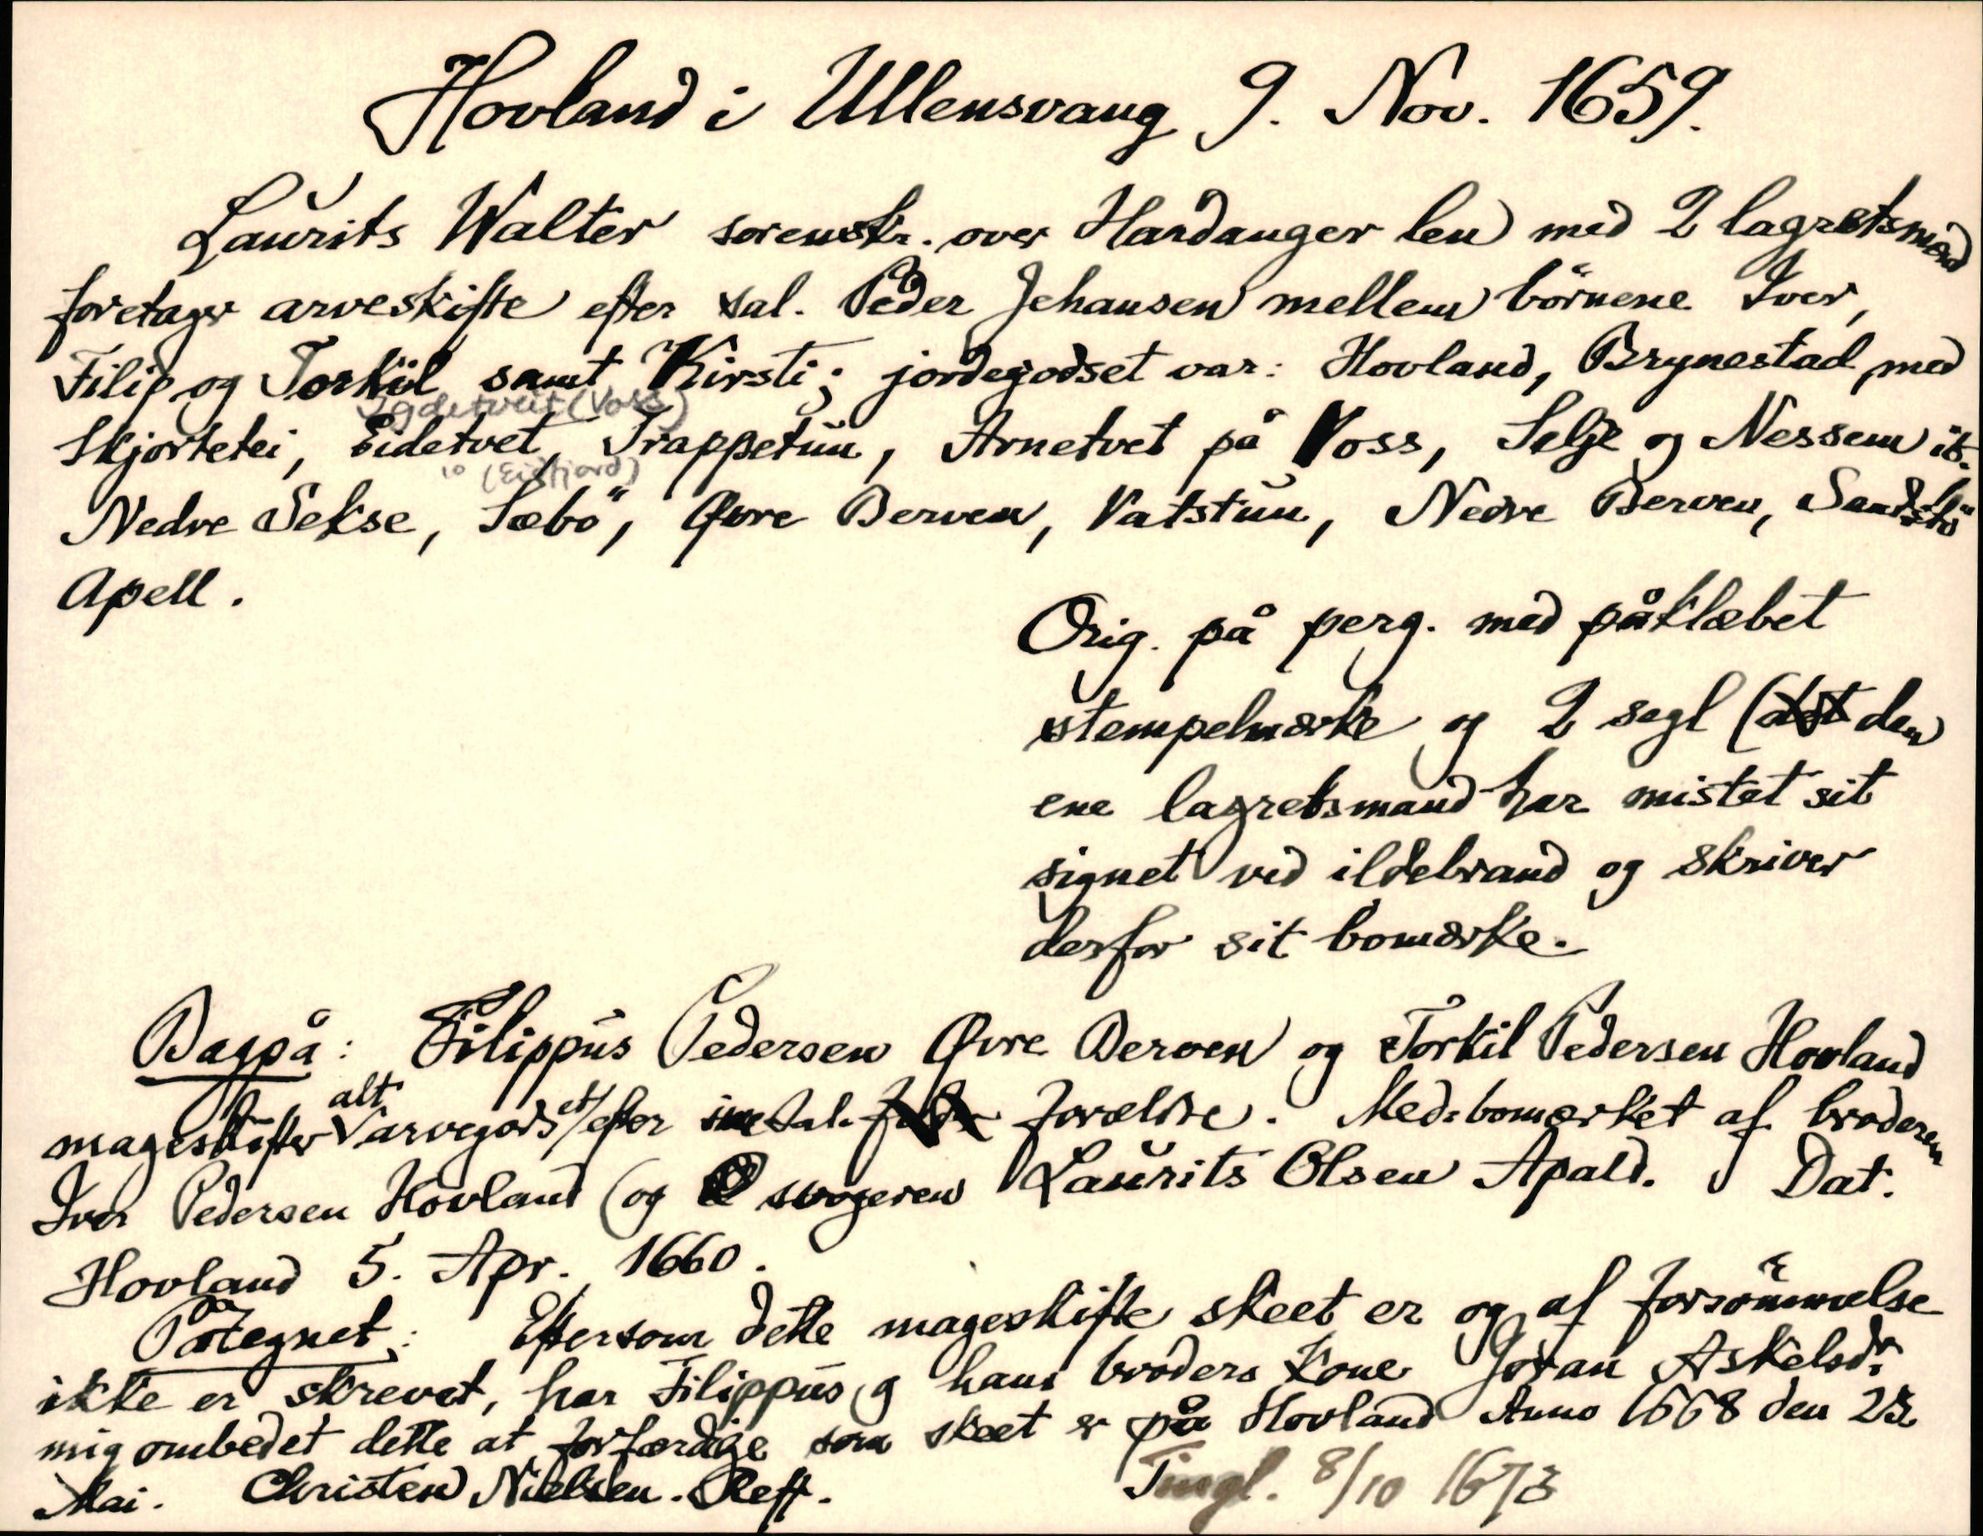 Hovland i Ullensvang 9. Nov. 1659.
Laurits Walter sorenskr. over Hardanger len med 2 lagretsmænd
foretager arveskifte efter sal. Peder Jehansen mellem børnene Iver,
Filip og Torkil samt Kirsti; jordegodset var: Hovland, Brynestad med
Ygdetveit (Voss)
Skjortetei, Eidetvet, Trappetun, Arnetvet på Voss, Selje og Nessem ib.
(Eidfjord)
Nedre Sekse, Sæbö, Øvre Berven, Vatstun, Nedre Berven, Sandstö
Apell.
Orig. på perg. med påklæbet
stempelmærke og 2 segl (den
ene lagretsmand har mistet sit
signet ved ildebrand og skriver
derfor sit bomærke.
Bagpå: Filippus Pedersen Øvre Berven og Torkil Pedersen Hovland
mageskifter alt arvegods et/efter sal. forældre. Med bomærket af broderen
Iver Pedersen Hovland (og svogeren Laurits Olsen Apald. Dat.
Hovland 5. Apr. 1660.
Påtegnet: Eftersom dette mageskifte skeet er og af forsömmelse
ikke er skrevet, har Filippus og hans broders kone Joran Askelsdr.
mig ombedet dette at forfærdige som skeet er på Hovland Anno 1668 den 23.
Mai. Christen Nielsen Reff.
Tingl. 8/10 1673